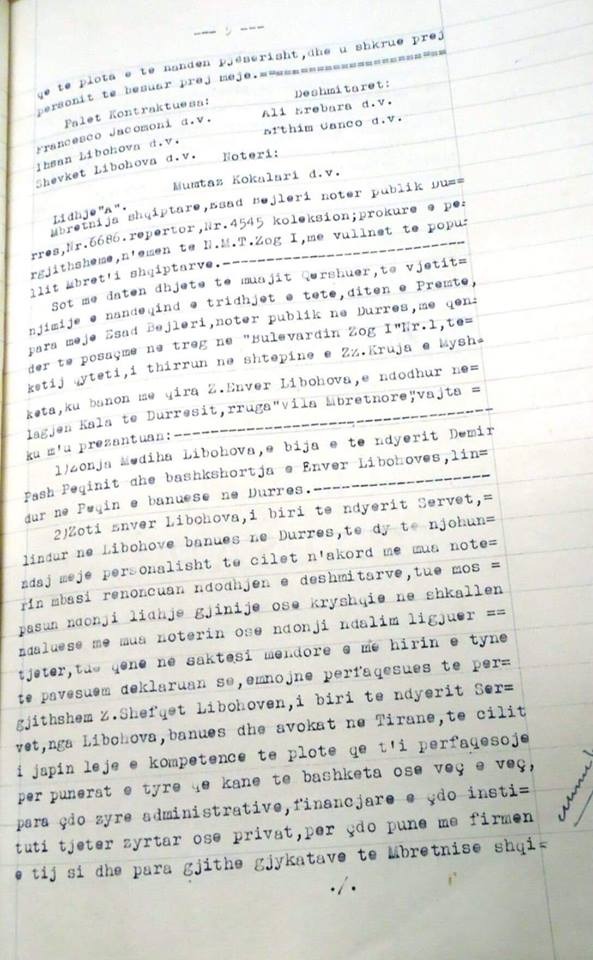 --- 5 ---
qe te plota e te nanden pjeserisht,dhe u shkrue prej
personit te besuar prej meje.=====================
Palet Kontraktuesa: Deshmitaret:
Francesco Jacomoni d.v. Ali Erebara d.v.
Ihsan Libohova d.v. Efthim Canco d.v.
Shevket Libohova d.v. Noteri:
Mumtaz Kokalari d.v.
Lidhje"A".
Mbretnija shqiptare,Esad Bejleri noter publik Du==
rres,Nr.6686.repertor,Nr.4545 koleksion;prokure e pe=
rgjithsheme,n'emen te N.M.T.Zog I,me vullnet te popu=
llit Mbret'i shqiptarve.-------------------------
Sot me daten dhjete te muajit Qershuer,te vjetit=
njimije e nandeqind e tridhjet e tete,diten e Premte,
para meje Esad Bejleri,noter publik ne Durres,me qen=
der te posaçme ne treg ne "Bulevardin Zog I"Nr.1,te=
ketij qyteti,i thirrun ne shtepine e Zz.Kruja e Mysh=
keta,ku banon me qira Z.Enver Libohova,e ndodhur ne=
lagjen Kala te Durresit,rruga"Vila Mbretnore",vajta =
ku m'u prezantuan:-------------------------------
1)Zonja Mediha Libohova,e bija e te ndyerit Demir
Pash Peqinit dhe bashkshortja e Enver Libohoves,lin=
dur ne Peqin e banuese ne Durres.-----------------
2)Zoti Enver Libohova,i biri te ndyerit Servet,=
lindur ne Libohove banues ne Durres,te dy te njohun=
ndaj meje personalisht te cilet n'akord me mua note=
rin mbasi renoncuan ndodhjen e deshmitarve,tue mos =
pasun ndonji lidhje gjinije ose kryshqie ne shkallen
ndaluese me mua noterin ose ndonji ndalim ligjuer ==
tjeter,tue qene ne saktesi mendore e me hirin e tyne
te pavesuem deklaruan se,emnojne perfaqesues te per=
gjithshem Z.Shefqet Libohoven,i biri te ndyerit Ser=
vet,nga Libohova,banues dhe avokat ne Tirane,te cilit
i japin leje e kompetence te plote qe t'i perfaqesoje
per punerat e tyre qe kane te bashketa ose veç e veç,
para çdo zyre administrative,financjare e çdo insti=
tuti tjeter zyrtar ose privat,per çdo pune me firmen
e tij si dhe para gjithe gjykatave te Mbretnise shqi=
./.